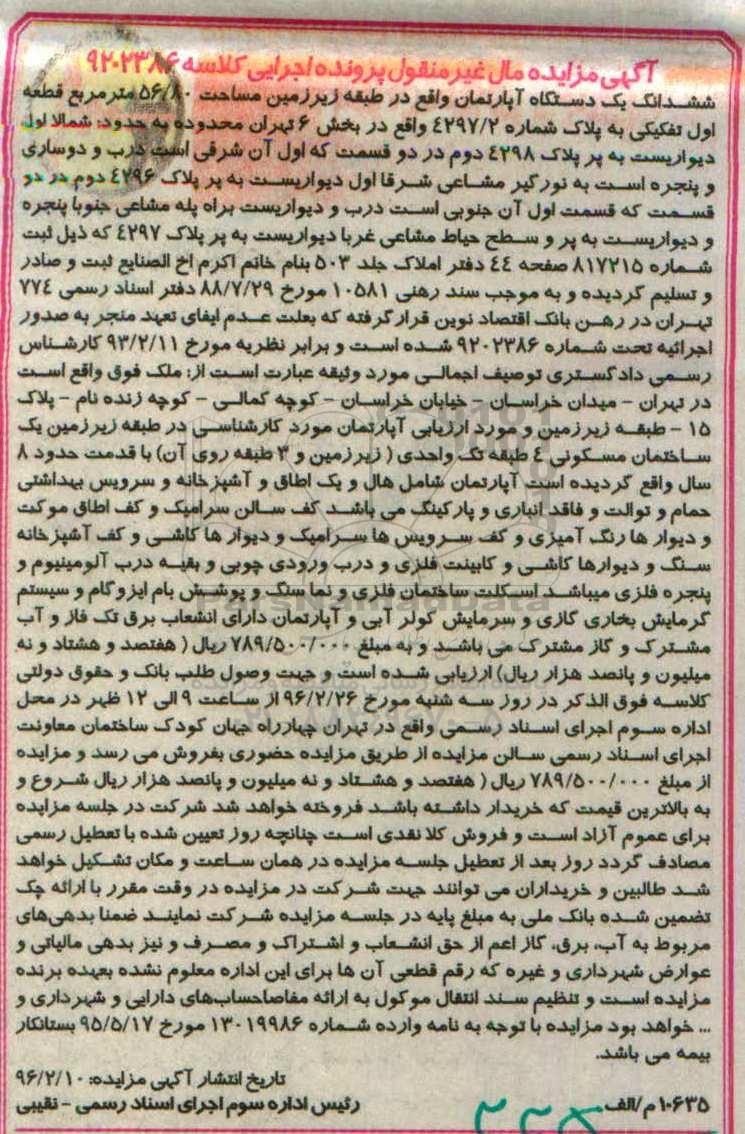 آگهی مزایده مال غیر منقول پرونده اجرایی کلاسه ۹۲۰۲۳۸۶
ششدانگ یک دستگاه آپارتمان واقع در طبقه زیرزمین مساحت ۵۶/۸۰ مترمربع قطعه
اول تفکیکی به پلاک شماره ۴۲۹۷/۲ واقع در بخش ۶ تهران محدوده به حدود: شمالا اول
دیواریست به پر پلاک ۴۲۹۸ دوم در دو قسمت که اول آن شرقی است درب و دوساری
و پنجره است به نورگیر مشاعی شرقا اول دیواریست به پر پلاک ۴۲۹۶ دوم در دو
قسمت که قسمت اول آن جنوبی است درب و دیواریست براه پله مشاعی جنوبا پنجره
و دیواریست به پر و سطح حیاط مشاعی غربا دیواریست به پر پلاک ۴۲۹۷ که ذیل ثبت
شماره ۸۱۷۲۱۵ صفحه ۴۴ دفتر املاک جلد ۵۰۳ بنام خانم اکرم اخ الصنایع ثبت و صادر
و تسلیم گردیده و به موجب سند رهنی ۱۰۵۸۱ مورخ ۸۸/۷/۲۹ دفتر اسناد رسمی ۷۷۴
تهران در رهن بانک اقتصاد نوین قرار گرفته که بعلت عدم ایفای تعهد منجر به صدور
اجرائیه تحت شماره ۹۲۰۲۳۸۶ شده است و برابر نظریه مورخ ۹۳/۲/۱۱ کارشناس
رسمی دادگستری توصیف اجمالی مورد وثیقه عبارت است از: ملک فوق واقع است
در تهران - میدان خراسان - خیابان خراسان - کوچه کمالی - کوچه زنده نام - پلاک
۱۵ - طبقه زیرزمین و مورد ارزیابی آپارتمان مورد کارشناسی در طبقه زیرزمین یک
ساختمان مسکونی ۴ طبقه تک واحدی ( زیرزمین و ۳ طبقه روی آن) با قدمت حدود ۸
سال واقع گردیده است آپارتمان شامل هال و یک اطاق و آشپزخانه و سرویس بهداشتی
حمام و توالت و فاقد انباری و پارکینگ می باشد کف سالن سرامیک و کف اطاق موکت
و دیوار ها رنگ آمیزی و کف سرویس ها سرامیک و دیوار ها کاشی و کف آشپزخانه
سنگ و دیوارها کاشی و کابینت فلزی و درب ورودی چوبی و بقیه درب آلومینیوم و
پنجره فلزی میباشد اسکلت ساختمان فلزی و نما سنگ و پوشش بام ایزوگام و سیستم
گرمایش بخاری گازی و سرمایش کولر آبی و آپارتمان دارای انشعاب برق تک فاز و آب
مشترک و گاز مشترک می باشد و به مبلغ ۷۸۹/۵۰۰/۰۰۰ ریال ( هفتصد و هشتاد و نه
میلیون و پانصد هزار ریال) ارزیابی شده است و جهت وصول طلب بانک و حقوق دولتی
کلاسه فوق الذکر در روز سه شنبه مورخ ۹۶/۲/۲۶ از ساعت ۹ الی ۱۲ ظهر در محل
اداره سوم اجرای اسناد رسمی واقع در تهران چهارراه جهان کودک ساختمان معاونت
اجرای اسناد رسمی سالن مزایده از طریق مزایده حضوری بفروش می رسد و مزایده
از مبلغ ۷۸۹/۵۰۰/۰۰۰ ریال ( هفتصد و هشتاد و نه میلیون و پانصد هزار ریال شروع و
به بالاترین قیمت که خریدار داشته باشد فروخته خواهد شد شرکت در جلسه مزایده
برای عموم آزاد است و فروش کلا نقدی است چنانچه روز تعیین شده با تعطیل رسمی
مصادف گردد روز بعد از تعطیل جلسه مزایده در همان ساعت و مکان تشکیل خواهد
شد طالبین و خریداران می توانند جهت شرکت در مزایده در وقت مقرر با ارائه چک
تضمین شده بانک ملی به مبلغ پایه در جلسه مزایده شرکت نمایند ضمنا بدهی‌های
مربوط به آب، برق، گاز اعم از حق انشعاب و اشتراک و مصرف و نیز بدهی مالیاتی و
عوارض شهرداری و غیره که رقم قطعی آن ها برای این اداره معلوم نشده بعهده برنده
مزایده است و تنظیم سند انتقال موکول به ارائه مفاصاحساب‌های دارایی و شهرداری و
... خواهد بود مزایده با توجه به نامه وارده شماره ۱۳۰۱۹۹۸۶ مورخ ۹۵/۵/۱۷ بستانکار
بیمه می باشد.
تاریخ انتشار آگهی مزایده: ۹۶/۲/۱۰
۱۰۶۳۵م/الف رئیس اداره سوم اجرای اسناد رسمی - نقیبی